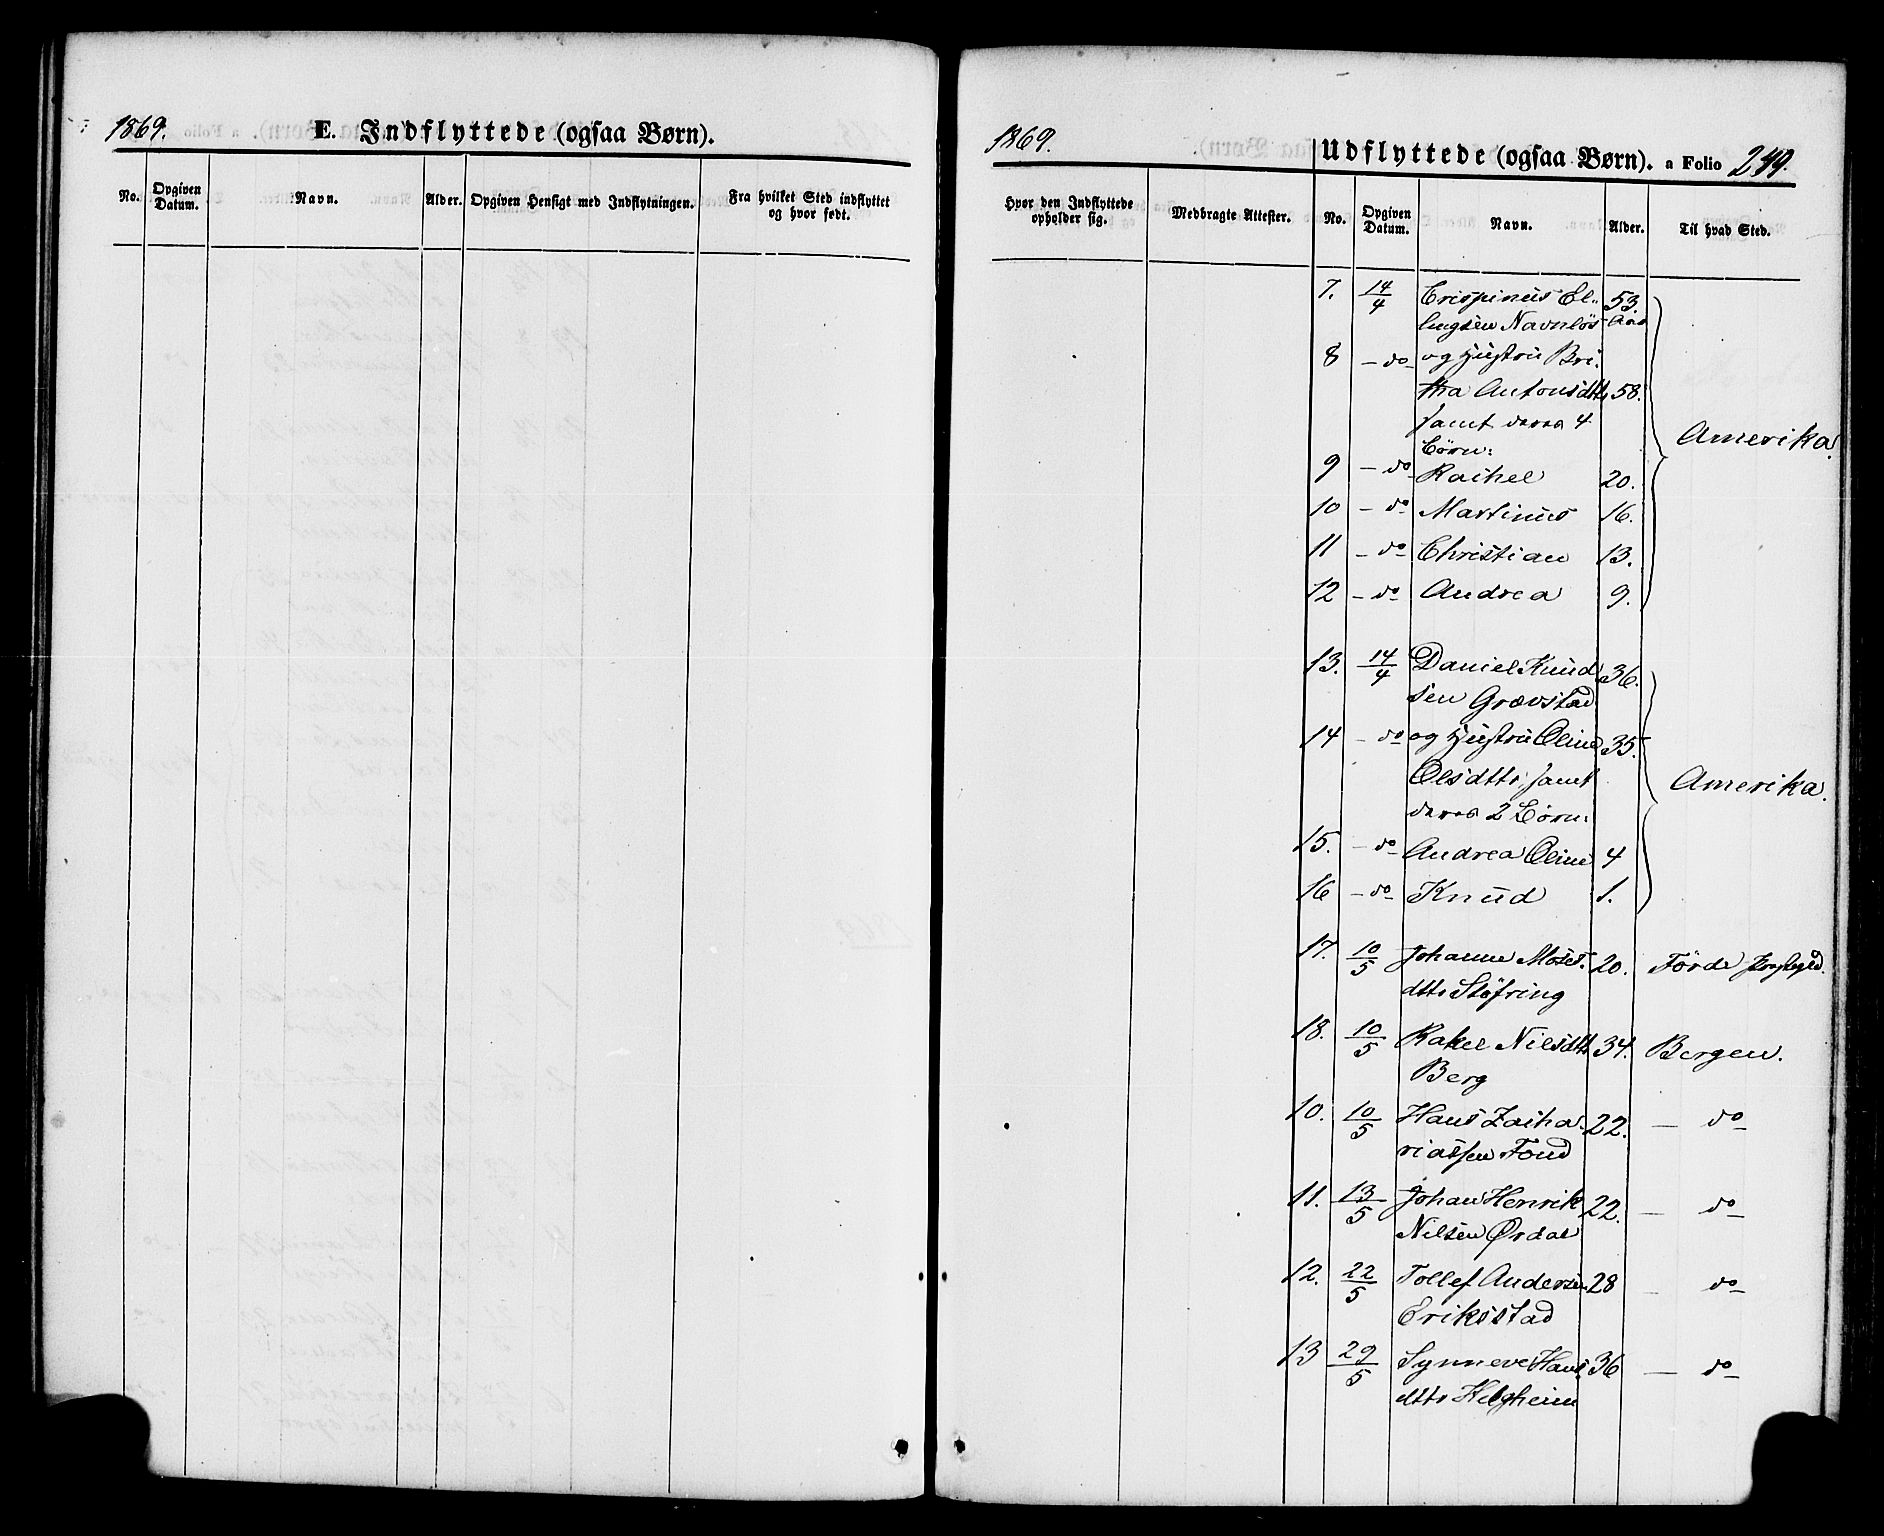 1869.
E. Indflyttede (ogsaa Børn).
No.
Opgiven Datum.
Navn.
Alder.
Opgiven Hensigt med Indflytningen.
Fra hvilket Sted indflyttet og hvor født.
1869.
Udflyttede (ogsaa Børn). a Folio 249.
Hvor den Indflyttede opholder sig.
Medbragte Attester.
No.
Opgiven Datum.
Navn.
Alder.
Til hvad Sted.
7. 14/4 Crispinus El- 53
lingsen Navnløs Aar
8 - do - og Hustru Bri-
tha Antonsdtr 58.
samt deres 4 Amerika.
Börn:
9 - do - Rachel 20.
10 - do - Martinus 16.
11 - do - Christian 13.
12 - do - Andrea 9.
13. 14/4 Daniel Knud 36.
sen Grovstad
14 - do - og Hustru Oline 35.
Olsdtr, samt Amerika.
deres 2 Börn:
15. - do - Andrea Oline 4
16 - do - Knud 1.
17. 10/5 Johanne Moses- 20. Förde Præstegjd.
dtr Stöfring
18. 10/5 Rakel Nilsdtr 34. Bergen.
Berg
10. 10/5 Hans Zacha- 22. — do -
riassen Fond
11. 13/5 Johan Henrik 22. — do -
Nilsen Ørdal
12. 22/5 Tollef Andersen 28 — do -
Eriksstad
13 29/5 Synneve Hans 36 — do -
dtr Helgheim